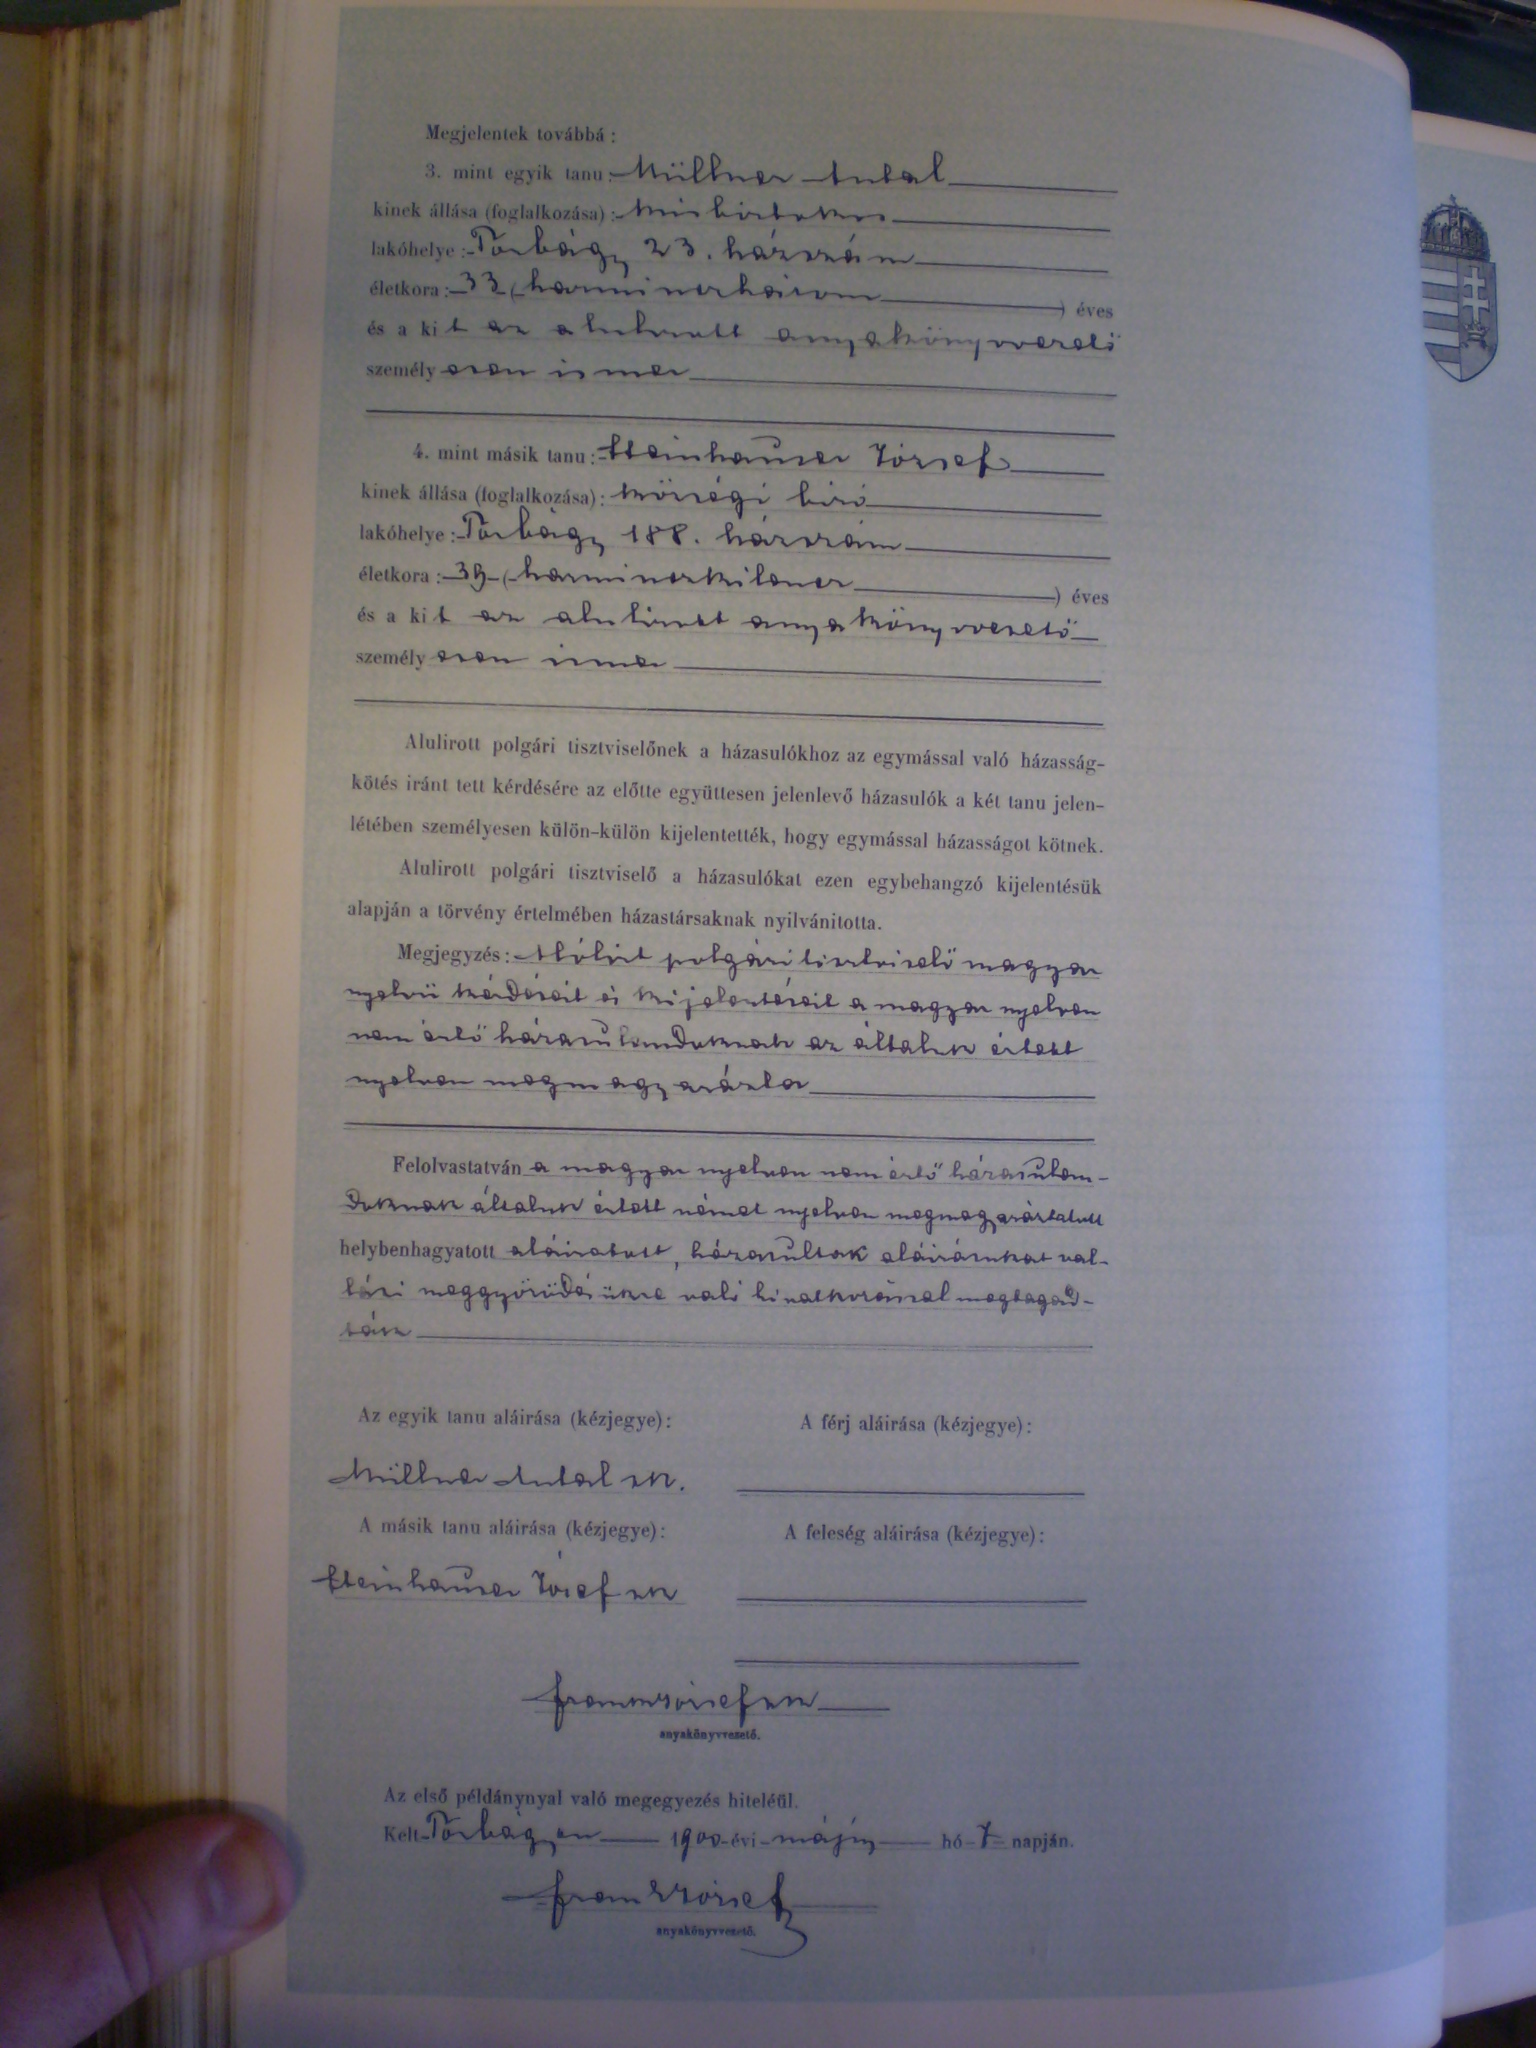 Megjelentek továbbá :
3. mint egyik tanu : Müllner Antal
kinek állása (foglalkozása) : kisbirtokos
lakóhelye : Torbágy 23. házszám
életkora : 33 (harminczhárom ) éves
és a kit az alulirott anyakönyvvezető
személy esen ismer
4. mint másik tanu : Steinhauser József
kinek állása (foglalkozása) : községi biró
lakóhelye : Torbágy 188. házszám
életkora : 39 (harminczkilencz ) éves
és a kit az alulirott anyakönyvvezető
személy esen ismer
Alulirott polgári tisztviselőnek a házasulókhoz az egymással való házasság-
kötés iránt tett kérdésére az előtte együttesen jelenlevő házasulók a két tanu jelen-
létében személyesen külön-külön kijelentették, hogy egymással házasságot kötnek.
Alulirott polgári tisztviselő a házasulókat ezen egybehangzó kijelentésük
alapján a törvény értelmében házastársaknak nyilvánitotta.
Megjegyzés : polgári tisztviselő magyar
nyelvü kérdéseit és kijelentéseit a magyar nyelven
nem értő házasulandóknak az általuk értett
nyelven megmagyarázta
Felolvastatván a magyar nyelven nem értő házasulan-
dóknak általuk értett német nyelven megmagyaráztatott
helybenhagyatott aláiratott, házasultak aláirásukat val-
lási meggyőződésükre való hivatkozással megtagad-
ták
Az egyik tanu aláirása (kézjegye) :
A férj aláirása (kézjegye) :
Müllner Antal sk.
A másik tanu aláirása (kézjegye) :
A feleség aláirása (kézjegye) :
Steinhauser József sk
József sk
anyakönyvvezető.
Az első példánynyal való megegyezés hiteléül.
Kelt Torbágyon 1900 évi május hó 7 napján.
József
anyakönyvvezető.